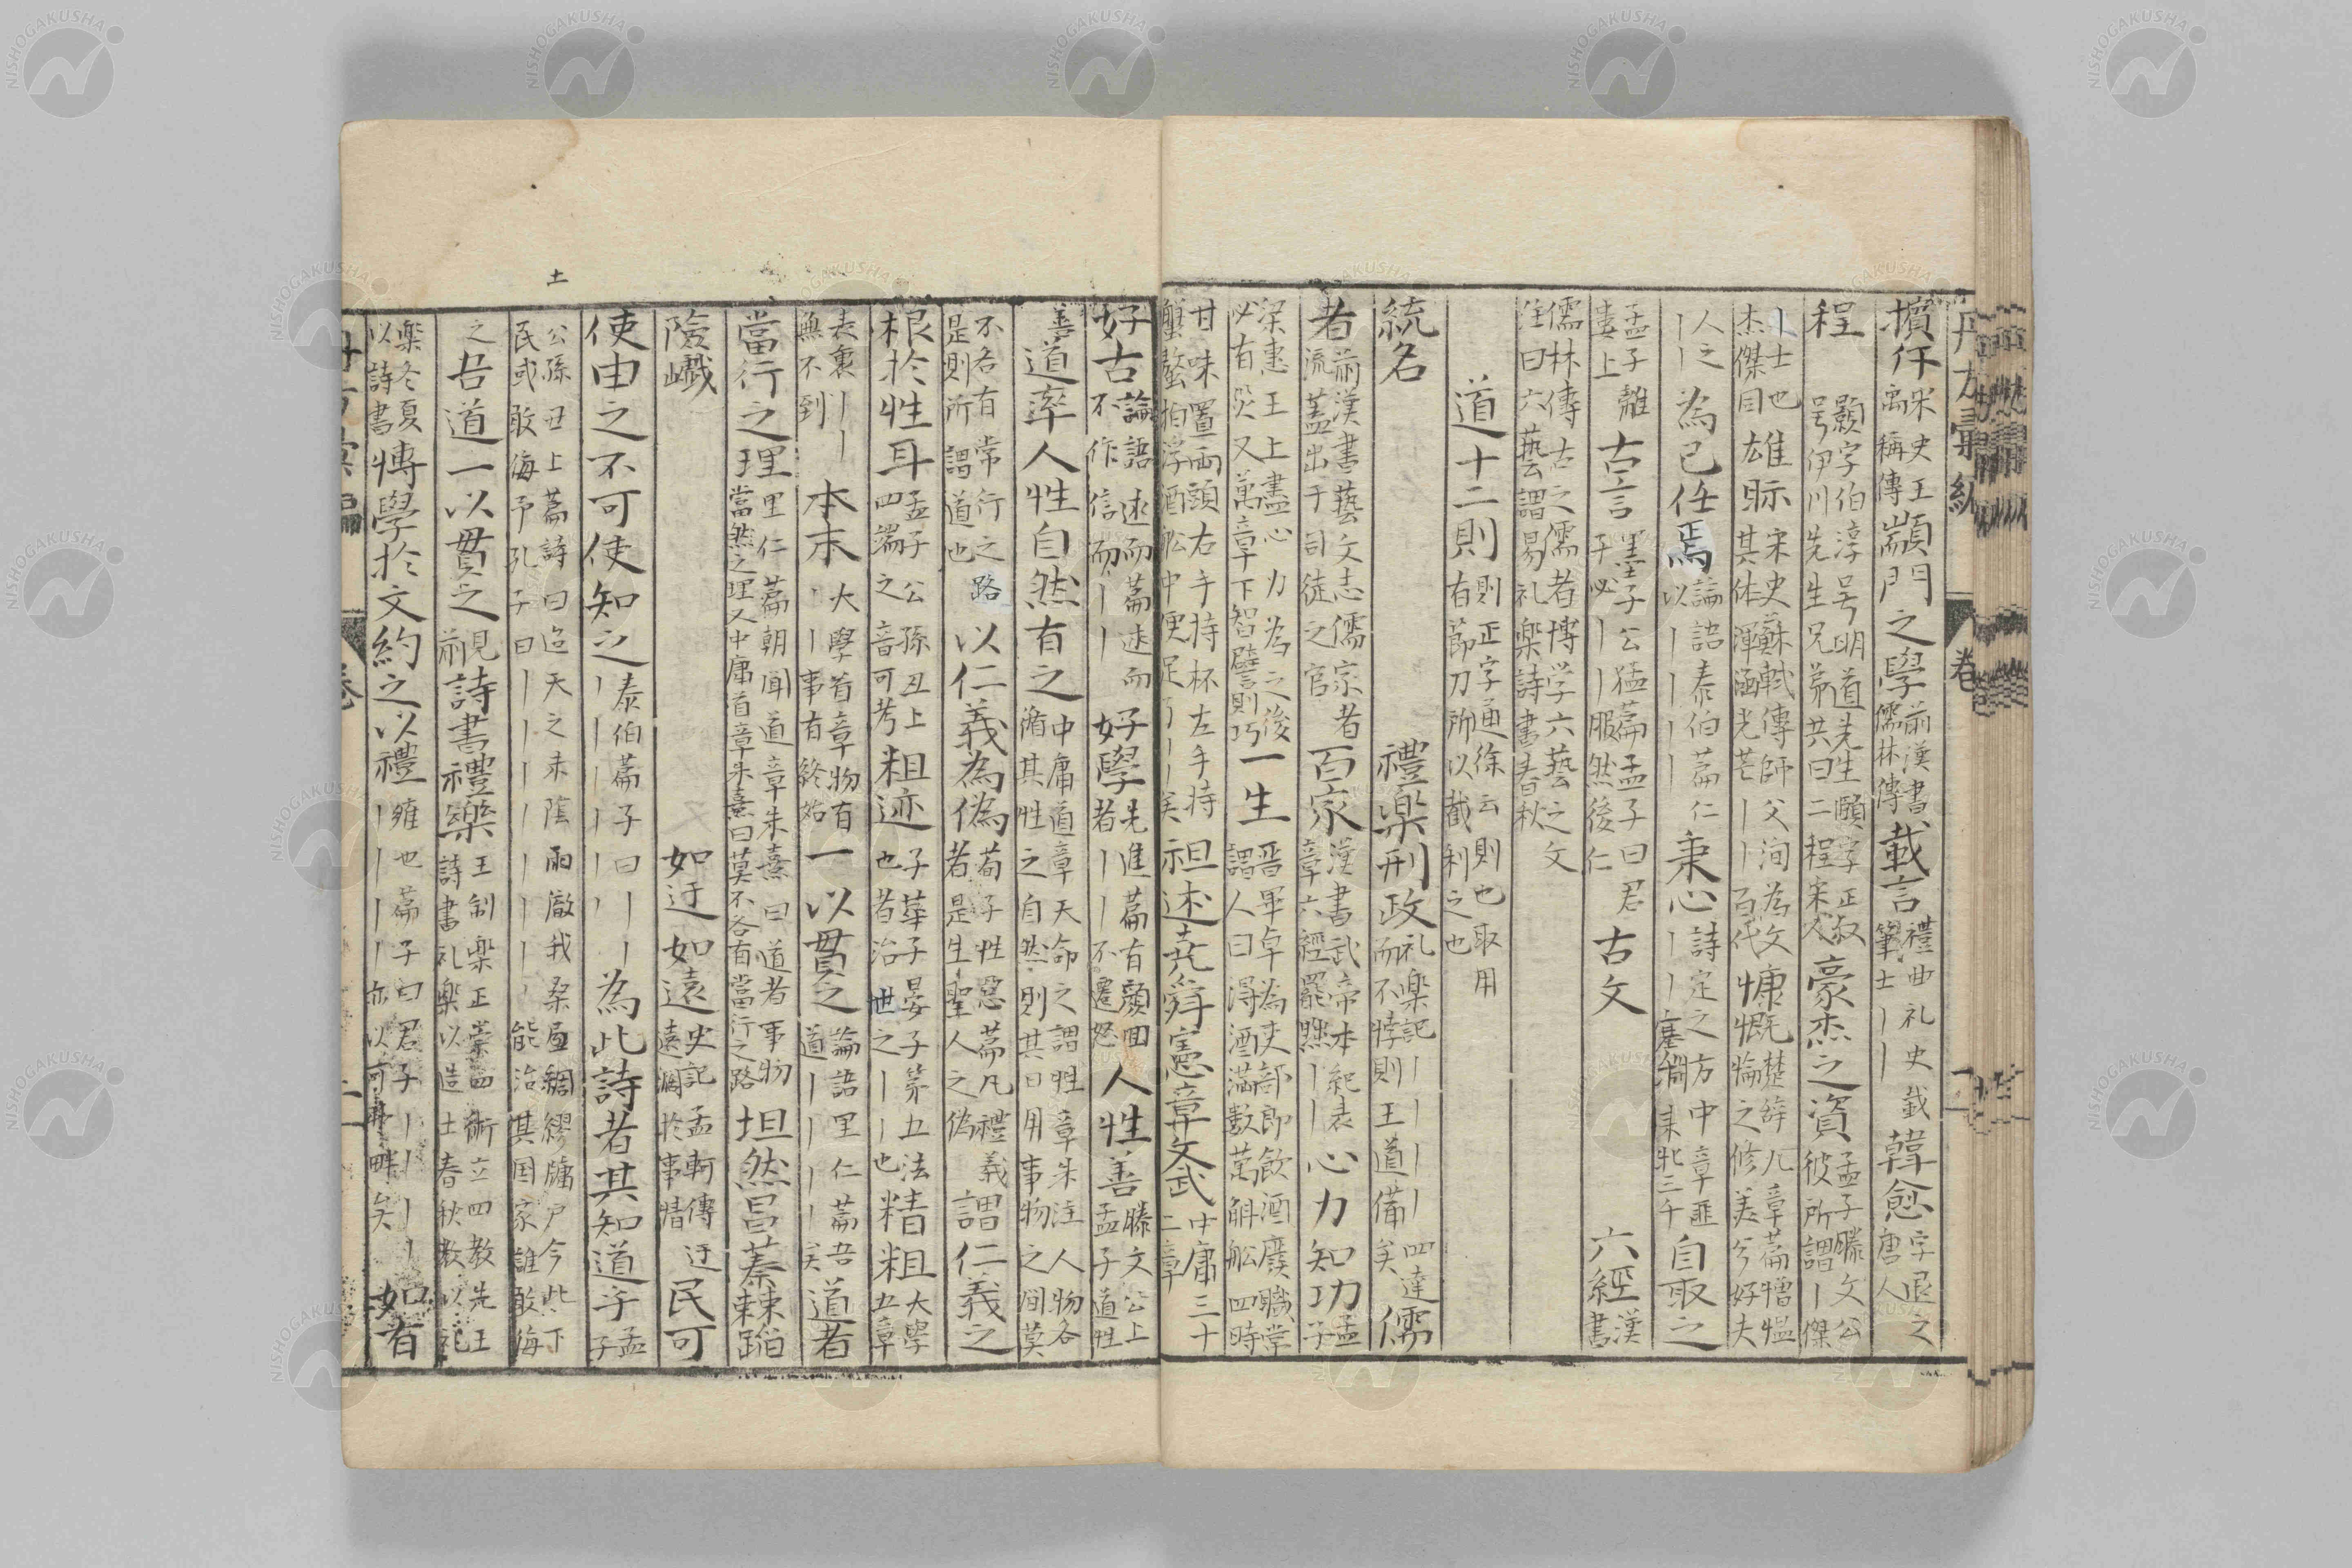 墳 宋史王禹稱傳 顓門之學 前漢書儒林傳 載言 禮曲礼史載筆士丨丨 韓愈 字退之唐人
程 顥字伯淳号明道先生頤字正叔号伊川先生兄弟共曰二程宋人 豪杰之資 孟子滕文公彼所謂丨傑
丨士也杰傑同 雄眎 宋史蘇軾傳師父洵為文其体渾涵光芒丨丨百代 慷慨 楚辞九章篇憎愠惀之修美兮好夫
人之丨丨 為己任焉 論語泰伯篇仁以丨丨丨丨 秉心 詩定之方中章匪丨丨丨塞淵牝三千 自取之
孟子離婁上 古言 墨子公猛篇孟子曰君子必丨丨服然後仁 古文 六經 漢書
儒林傳古之儒者博学六藝之文注曰六藝謂易礼楽詩書春秋
道十二則 則正字通徐云則也取用有節刀所以裁制之也
統名 禮楽刑政 礼楽記丨丨丨丨四達而不悖則王道備矣 儒
者 前漢書藝文志儒家者流蓋出于司徒之官 百家 漢書武帝本紀表章六經罷黜丨丨 心力知功 孟子
梁惠王上盡心力為之後必有災又萬章下智譬則巧 一生 晋畢卓為吏部郎飲酒廢職常謂人曰得酒滿數百斛舩四時
甘味置両頭右手持杯左手持蟹螯拍浮酒舩中便足了丨丨矣 祖述堯舜憲章文武 中庸三十二章
好古 論語述而篇述而不作信而丨丨 好學 先進篇有顔回者丨丨不遷怒 人性善 滕文公上孟子道性
善 道率人性自然有之 中庸道章天命之謂性章朱注人物各循其性之自然則其日用事物之間莫
不各有常行之路是則所謂道也 以仁義為偽 荀子性惡篇凡禮義者是生聖人之偽 謂仁義之
根於性耳 孟子公孫丑上四端之音可考 粗迹 子華子晏子第五法也者治世之丨丨也 精粗 大學五章
表裏丨丨無不到 本末 大學首章物有丨丨事有終始 一以貫之 論語里仁篇吾道丨丨丨丨矣 道者
當行之理 里仁篇朝聞道章朱熹曰道者事物當然之理又中庸首章朱熹曰莫不各有當行之路 坦然 昌蓁棘蹈
險巇 如迂如遠 史記孟軻傳迂遠濶於事情 民可
使由之不可使知之 泰伯篇子曰丨丨丨丨丨丨丨丨 為此詩者其知道乎 孟子
公孫丑上篇詩曰迨天之未陰雨徹我桑土綢繆牖戸今此下民或敢侮予孔子曰丨丨丨丨丨丨丨能治其国家誰敢侮
之 吾道一以貫之 見前 詩書禮樂 王制楽正崇四術立四教先王詩書礼楽以造士春秋教以礼
楽冬夏以詩書 博學於文約之以禮 雍也篇子曰君子丨丨丨丨丨丨丨亦以可弗畔矣 如有
土